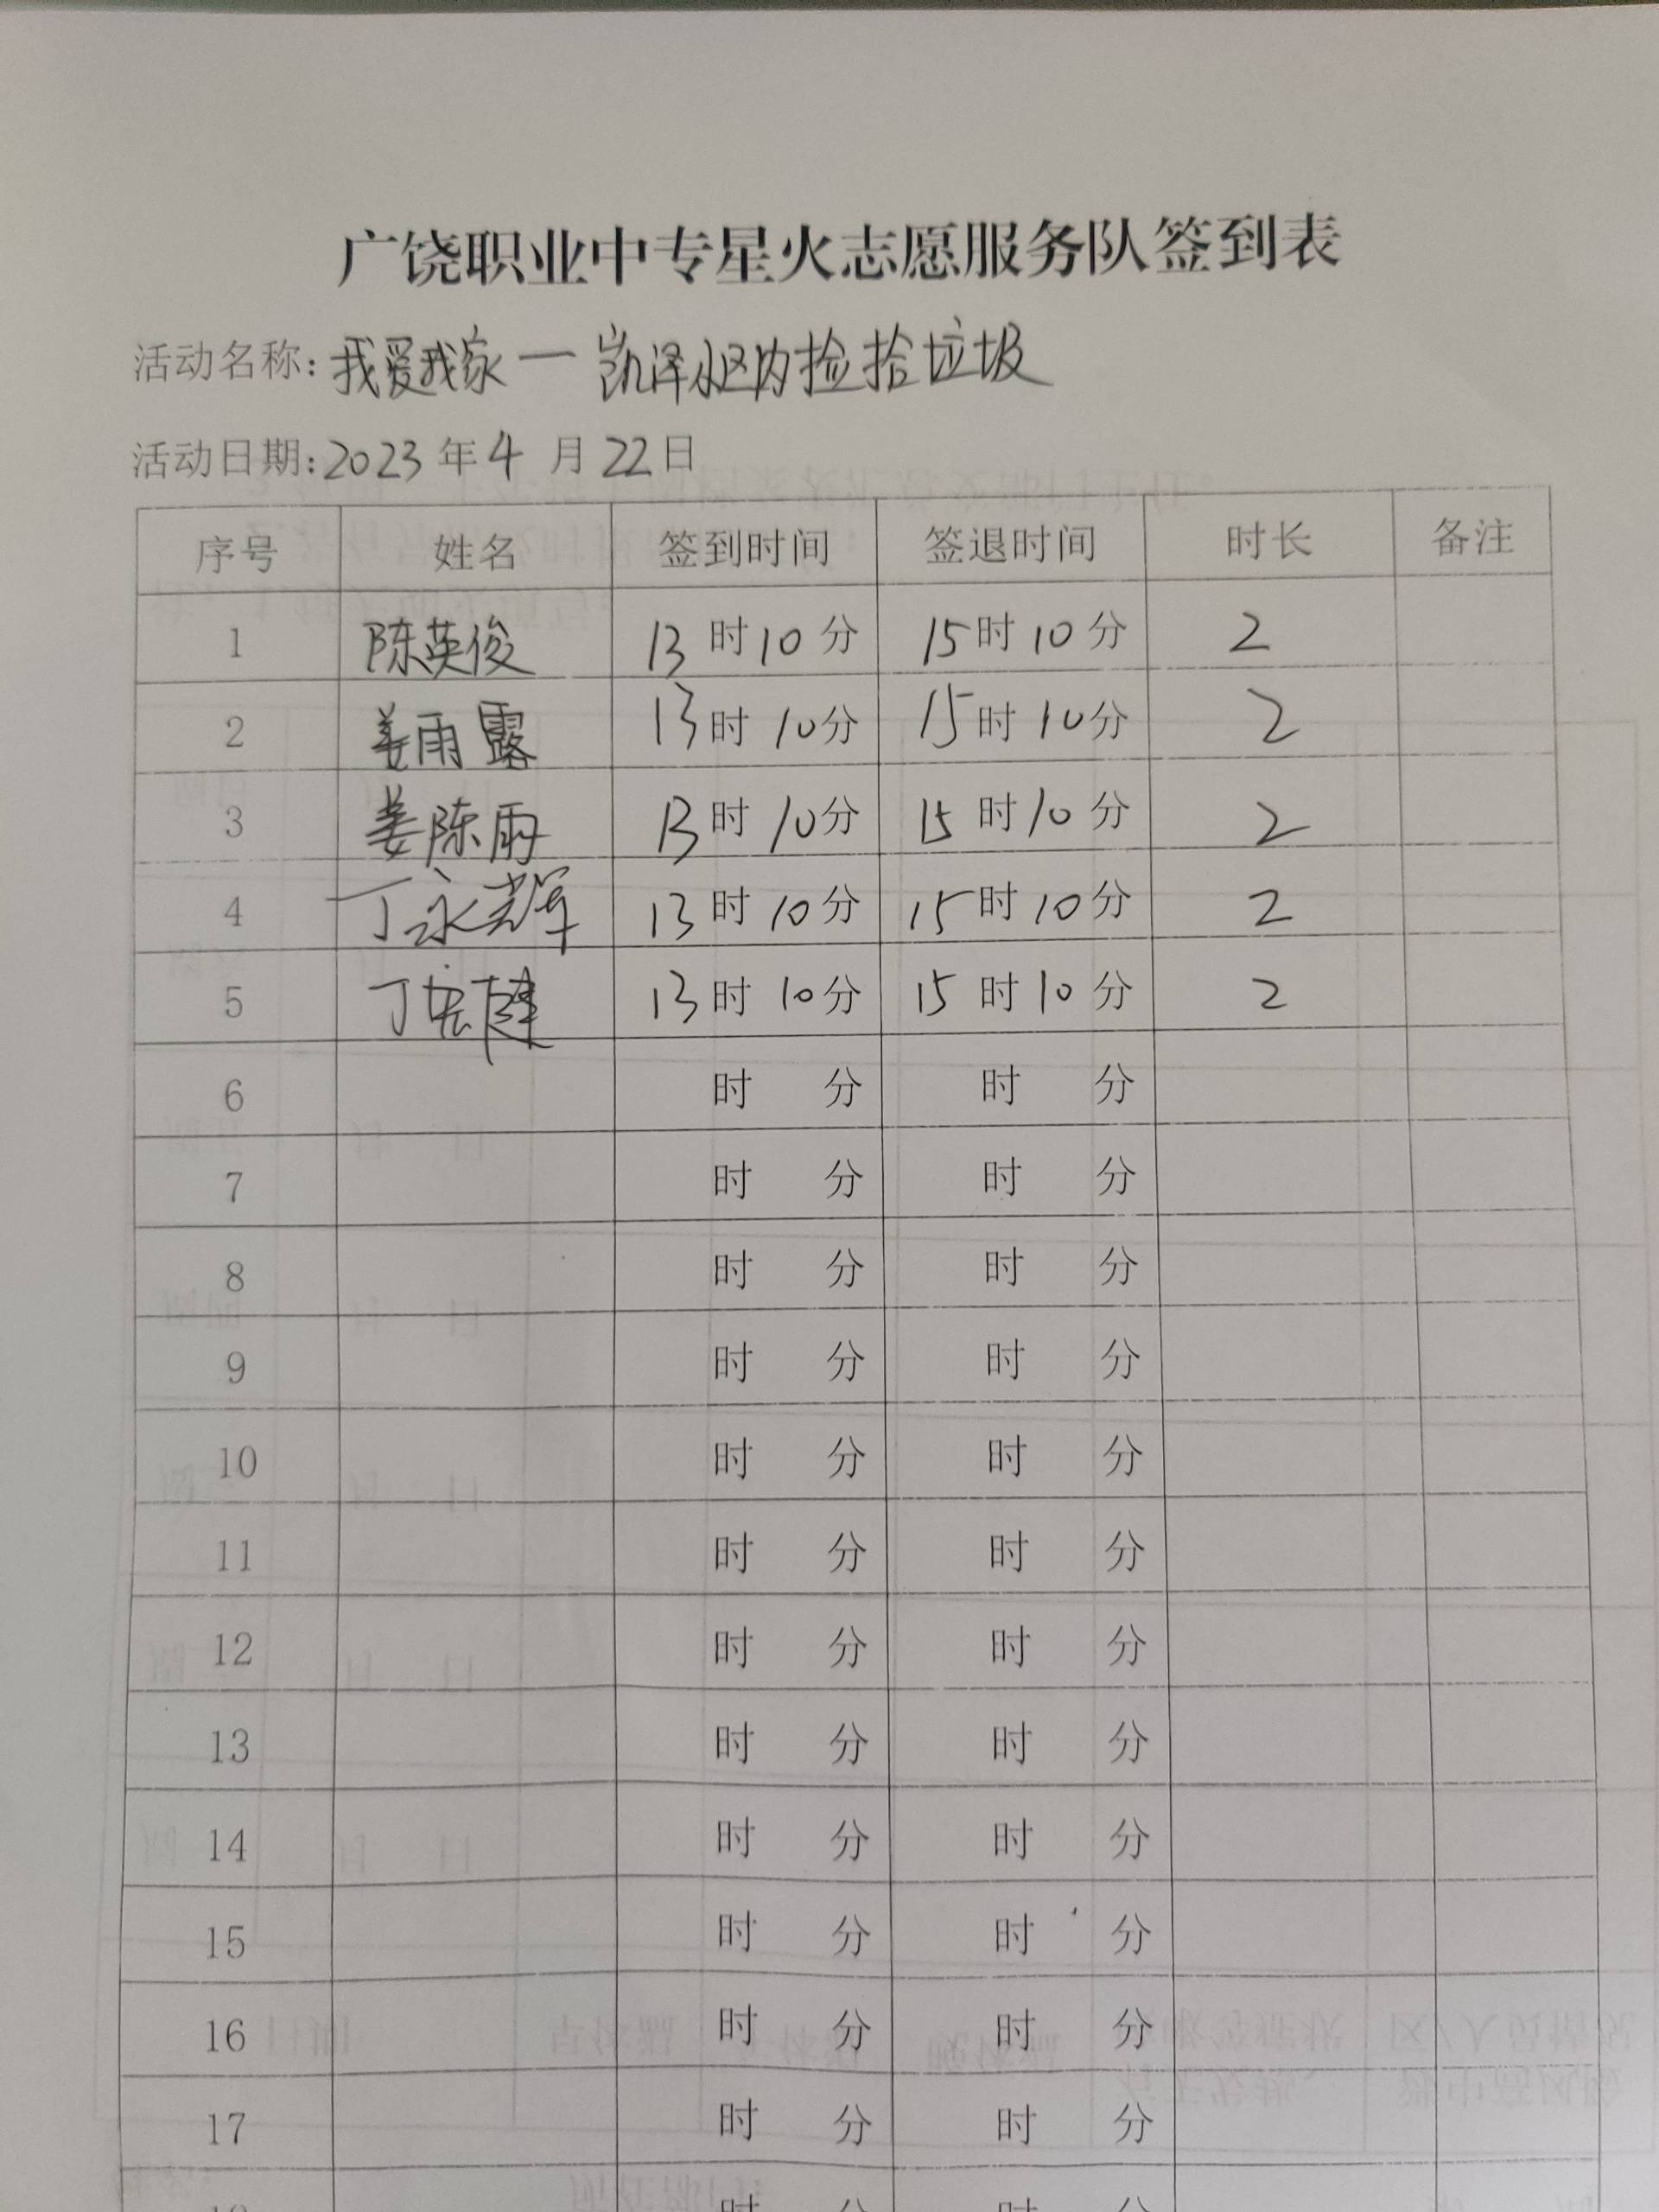 广饶职业中专星火志愿服务队签到表
活动名称:我爱我家一凯泽小区内捡拾垃圾
活动日期:2023年4月22日
序号 姓名 签到时间 签退时间 时长 备注
1 陈英俊 13时10分 15时10分 2
2 姜雨露 13时10分 15时10分 2
3 姜陈雨 13时10分 15时10分 2
4 丁永辉 13时10分 15时10分 2
5 丁 健 13时10分 15时10分 2
6 时 分 时 分
7 时 分 时 分
8 时 分 时 分
9 时 分 时 分
10 时 分 时 分
11 时 分 时 分
12 时 分 时 分
13 时 分 时 分
14 时 分 时 分
15 时 分 时 分
16 时 分 时 分
17 时 分 时 分